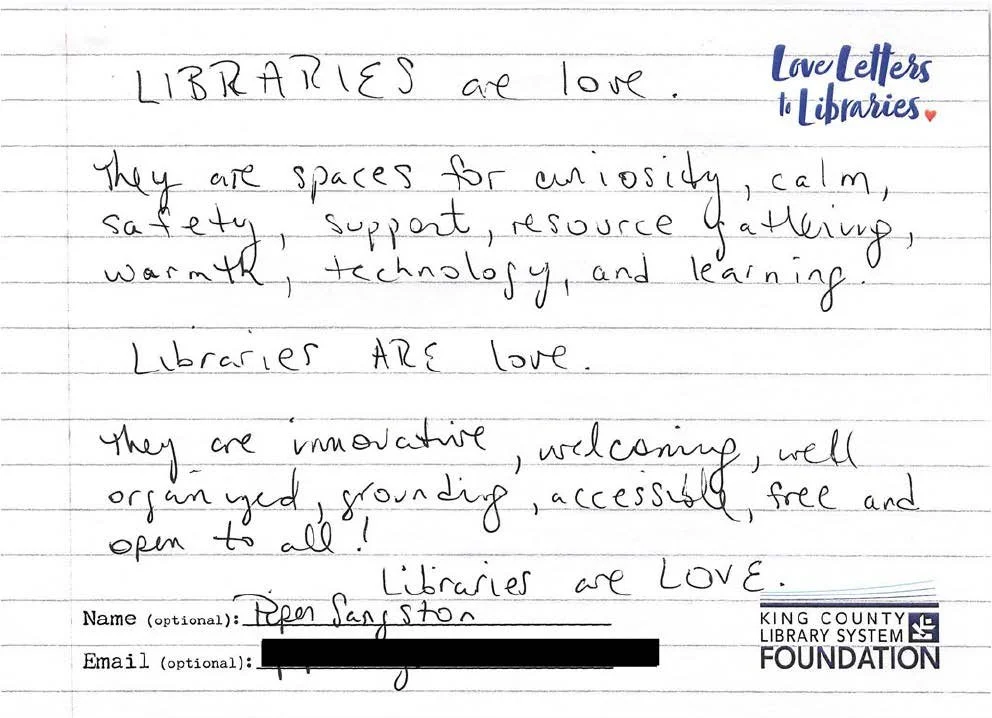 LIBRARIES are love.
Love Letters
to Libraries.
They are spaces for curiosity, calm,
safety, support, resource gathering,
warmth, technology, and learning.
Libraries ARE love.
They are innovative, welcoming, well
organized, grounding, accessible, free and
open to all!
Libraries are LOVE.
Name (optional): Piper Sangston
Email (optional):
KING COUNTY
LIBRARY SYSTEM
FOUNDATION